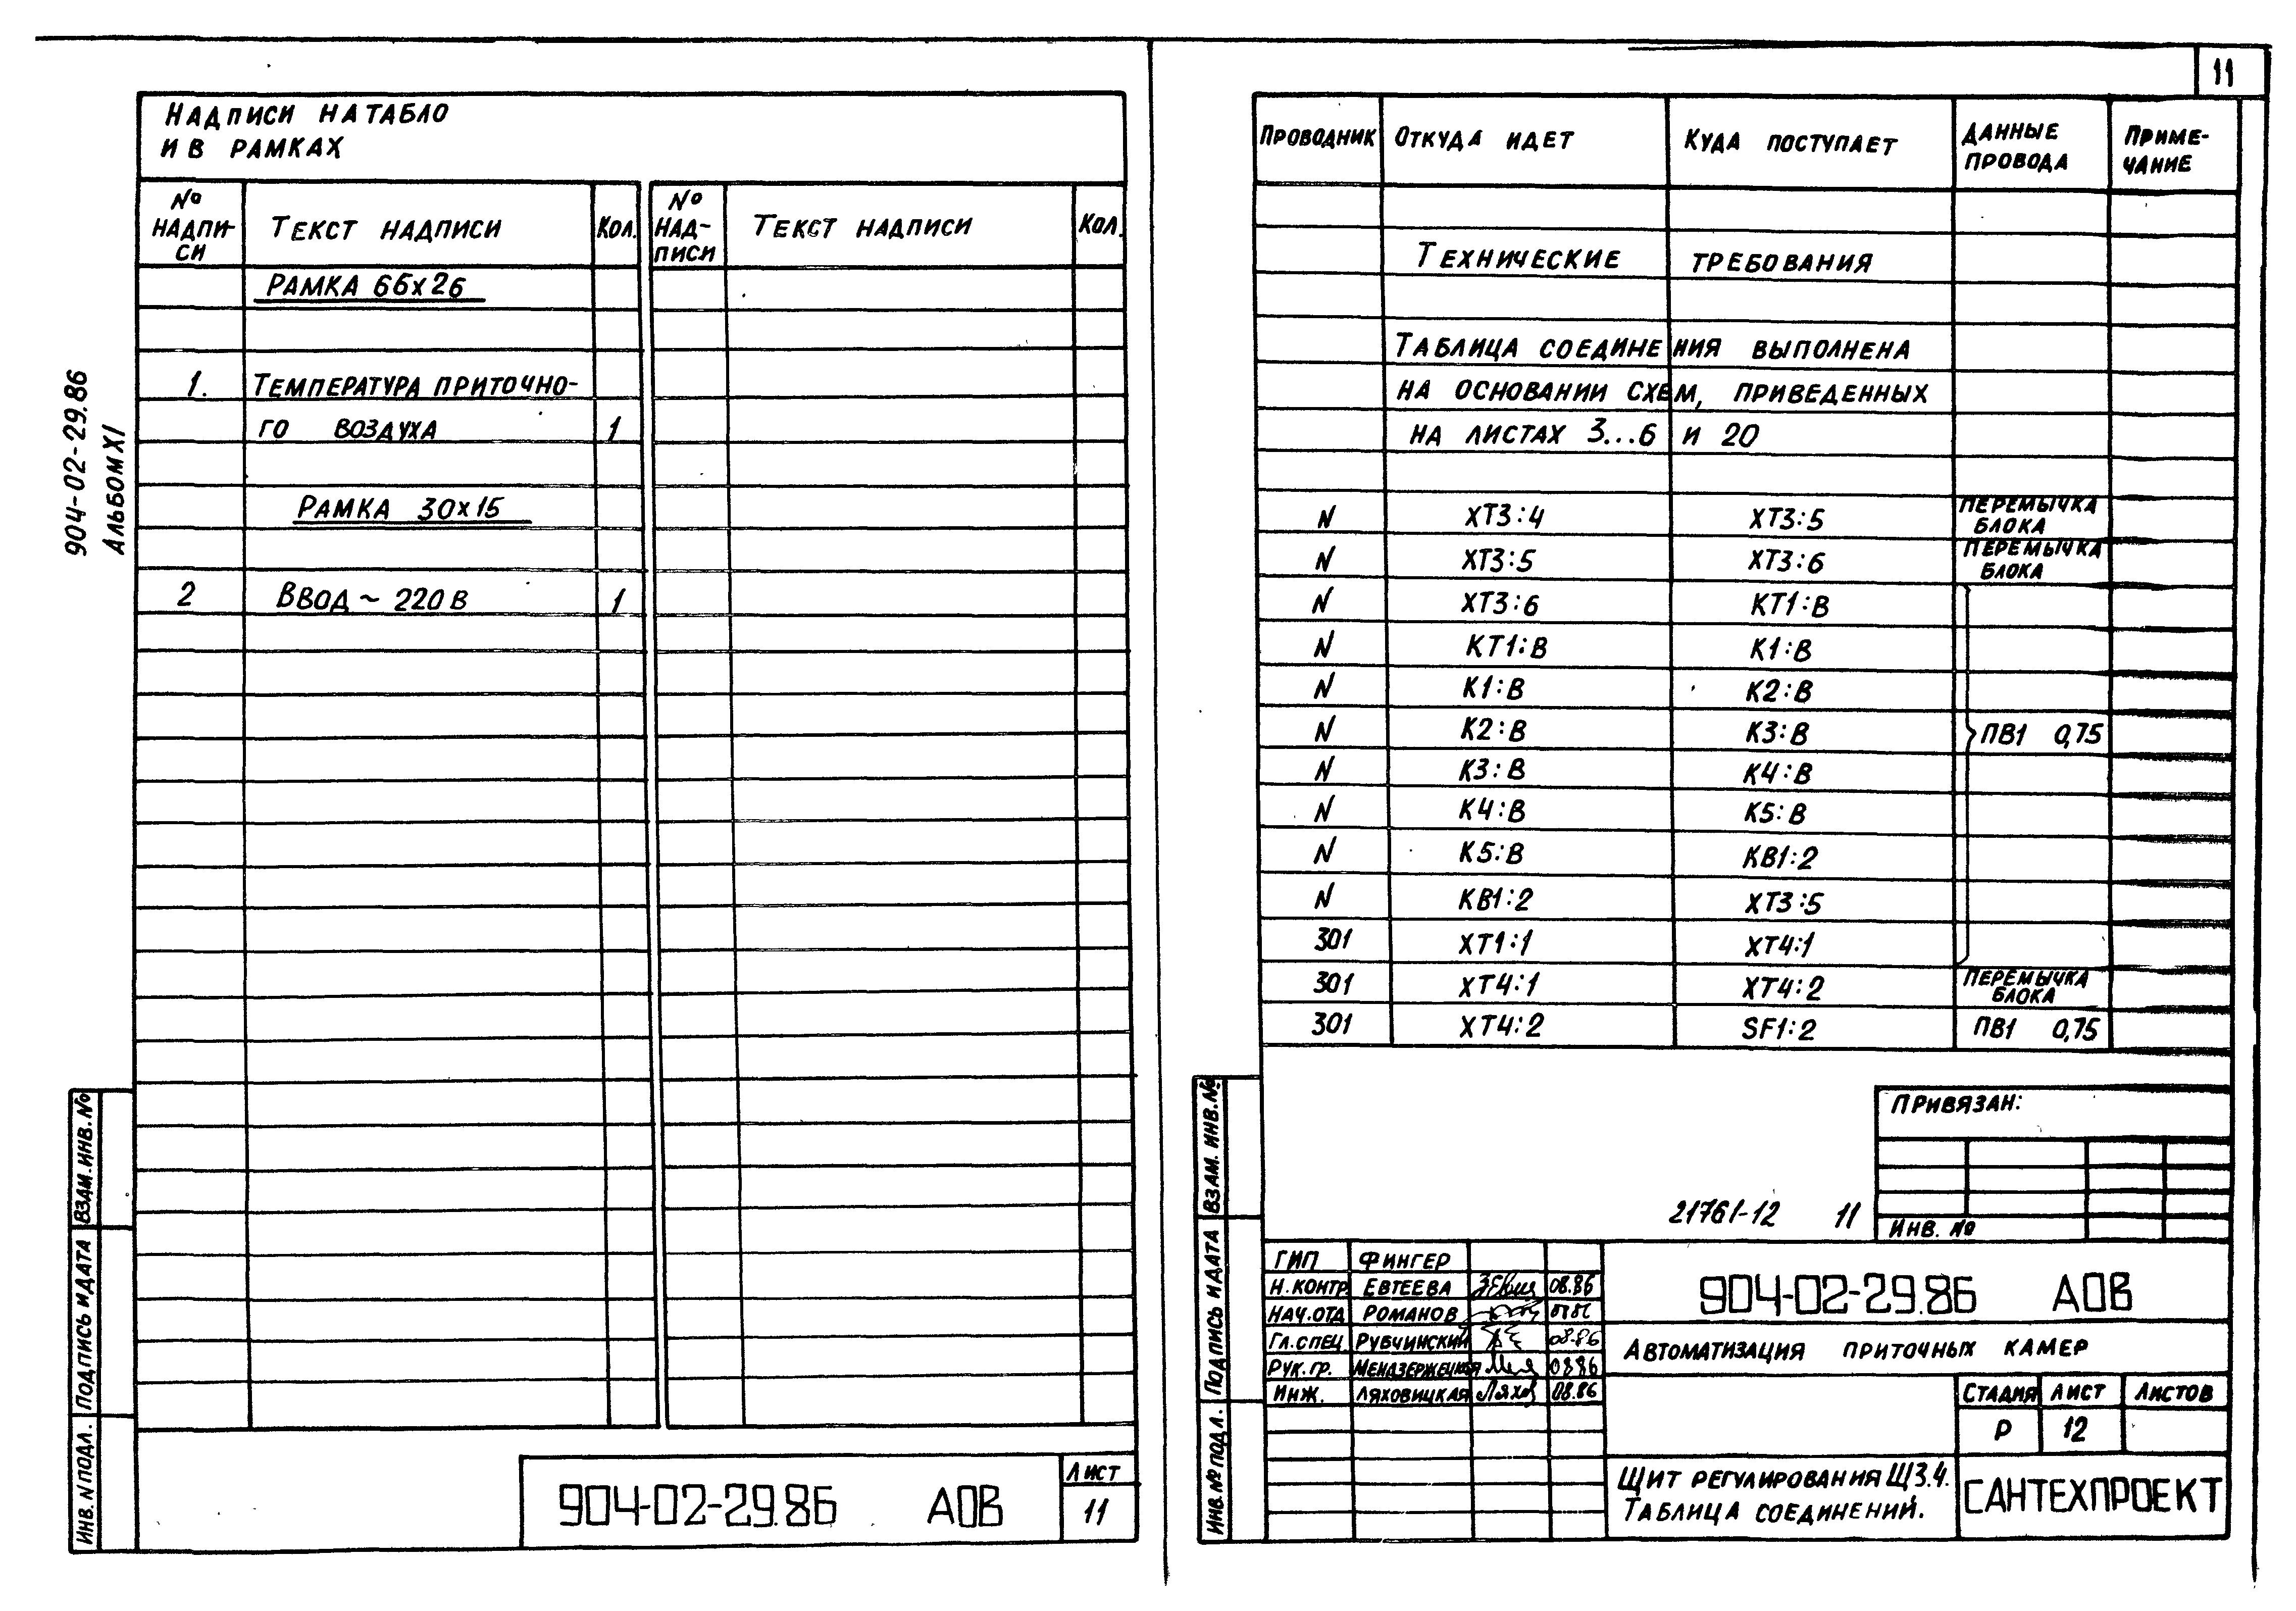 11
904-02-29.86
АЛЬБОМ XI
НАДПИСИ НА ТАБЛО
И В РАМКАХ
№ НАДПИ-СИ ТЕКСТ НАДПИСИ КОЛ. № НАД-ПИСИ ТЕКСТ НАДПИСИ КОЛ.
РАМКА 66х26
1. ТЕМПЕРАТУРА ПРИТОЧНО-
ГО ВОЗДУХА 1
РАМКА 30х15
2 ВВОД ~ 220 В 1
ВЗАМ. ИНВ. №
ПОДПИСЬ И ДАТА
ИНВ. N ПОДЛ.
904-02-29.86 АОВ
ЛИСТ
11
ПРОВОДНИК ОТКУДА ИДЕТ КУДА ПОСТУПАЕТ ДАННЫЕ ПРОВОДА ПРИМЕ-ЧАНИЕ
ТЕХНИЧЕСКИЕ ТРЕБОВАНИЯ
ТАБЛИЦА СОЕДИНЕНИЯ ВЫПОЛНЕНА
НА ОСНОВАНИИ СХЕМ, ПРИВЕДЕННЫХ
НА ЛИСТАХ 3...6 И 20
N ХТ3:4 ХТ3:5 ПЕРЕМЫЧКА БЛОКА
N ХТ3:5 ХТ3:6 ПЕРЕМЫЧКА БЛОКА
N ХТ3:6 КТ1:В
N КТ1:В К1:В
N К1:В К2:В
N К2:В К3:В ПВ1 0,75
N К3:В К4:В
N К4:В К5:В
N К5:В КВ1:2
N КВ1:2 ХТ3:5
301 ХТ1:1 ХТ4:1
301 ХТ4:1 ХТ4:2 ПЕРЕМЫЧКА БЛОКА
301 ХТ4:2 SF1:2 ПВ1 0,75
ПРИВЯЗАН:
ИНВ. №
21761-12 11
ВЗАМ. ИНВ. №
ПОДПИСЬ И ДАТА
ИНВ. № ПОДЛ.
ГИП ФИНГЕР
Н. КОНТР. ЕВТЕЕВА 08.86
НАЧ. ОТД РОМАНОВ
ГЛ. СПЕЦ. РУБЧИНСКИЙ 08.86
РУК. ГР. МЕНДЗЕРЖЕЦКАЯ 08.86
ИНЖ. ЛЯХОВИЦКАЯ Ляхов 08.86
904-02-29.86 АОВ
АВТОМАТИЗАЦИЯ ПРИТОЧНЫХ КАМЕР
СТАДИЯ ЛИСТ ЛИСТОВ
Р 12
ЩИТ РЕГУЛИРОВАНИЯ Щ3.4.
ТАБЛИЦА СОЕДИНЕНИЙ.
САНТЕХПРОЕКТ